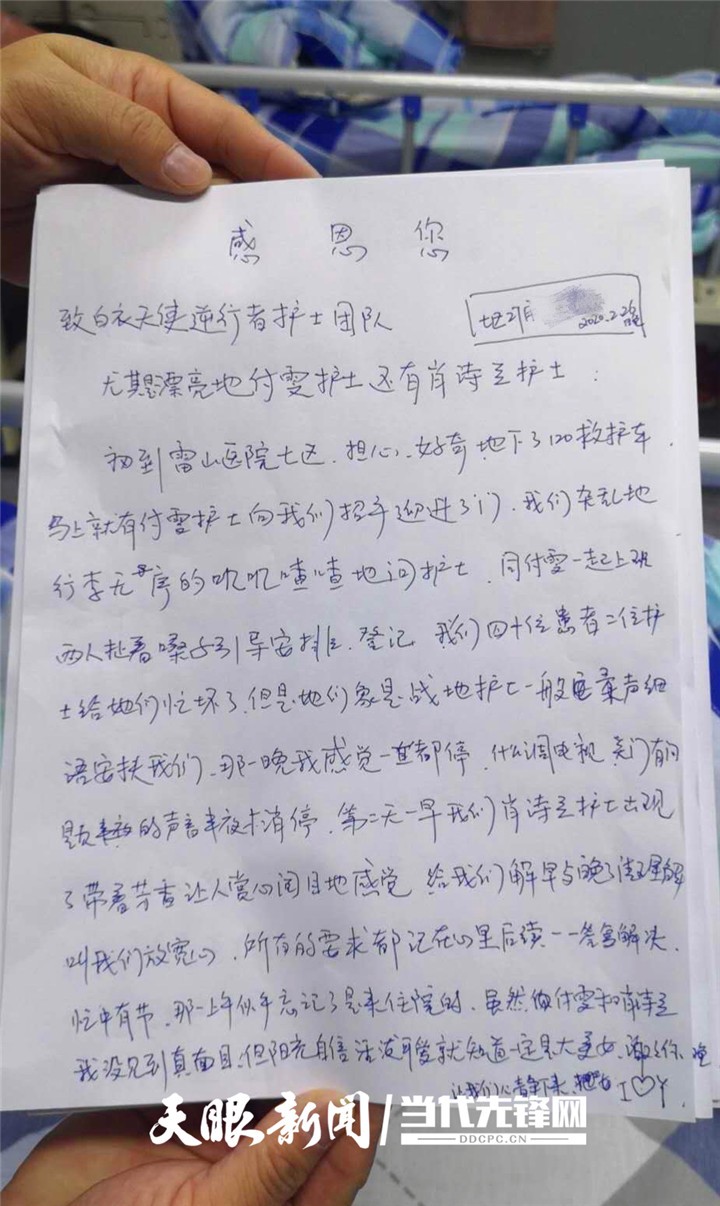 感恩您
致白衣天使逆行者护士团队
2020.2.26
尤其漂亮地付雯护士还有肖诗兰护士：
初到雷山医院七区、担心、好奇地下了120救护车、
马上就有付雯护士向我们招手迎进了门、我们杂乱地
行李无序的叽叽喳喳地问护士、同付雯一起上班
两人扯着嗓子引导安排、登记、我们四十位患者二位护
士给她们忙坏了、但是她们象是战地护士一般柔声细
语安抚我们、那一晚我感觉一直都停、什么调电视 关门有问
题的声音半夜才消停、第二天一早我们肖诗兰护士出现
了带着芳香让人赏心阅目地感觉 给我们解早与晚
叫我们放宽心、所有的要求都记在心里后续一一答复解决、
忙中有节、那一上午似乎忘记了是来住院的、虽然
我没见到真面目、但阳光自信活泼可爱就知道一定是大美女、谢谢你
让我们心静下来 I♡Y
天眼新闻 当代先锋网
DDCPC.CN